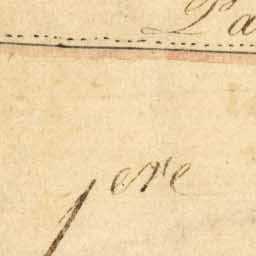 Pa
1ere